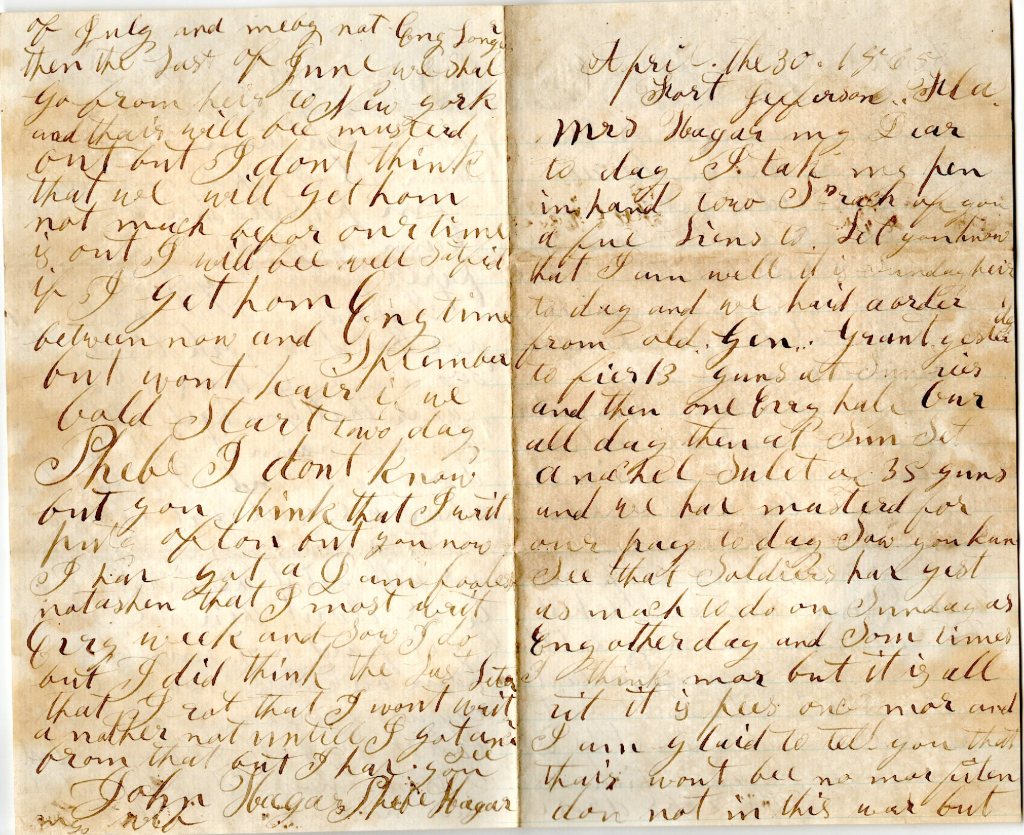 April. the 30. 1865
Fort Jefferson. Fla.
Mrs Hagar my Dear
to day I. tak my pen
in hand two rich of you
a fue Liens to. Let you know
that I am well it is Sunday heir
to day and we haid aorder
from old. Gen. Grant yester
day
to fier 13 guns at Sun ries
and then one Erry half Our
all day then at Sun Set
a nachel Sulet of 35 guns
and we hav musterd for
our pay to day Sow you kan
See that Soldiers hav yest
as mach to do on Sunday as
Eny other day and Som times
I think mor but it is all
rit it is pees onc mor and
I am glaid to tell you that
thair wont bee no mor fiten
don not in this war but
of July and meay nat Eny Longer
then the Last of June we Shal
go from heir to New york
and thair will bee musterd
out but I dont think
that we will get hom
not much befor our time
is out I will bee well Satfied
if I get hom Eny time
between now and September
but wont kair if we
bold Start two day
Phebe I dont know
but you think that I writ
puty ofton but you now
I hav got a Dam fooles
notashen that I most writ
Erry week and Sow I do
but I did think the Last Leter
that I rot that I wont writ
a nother not untill I got
from that but I hav. you
See
John Hagar Phebe Hagar